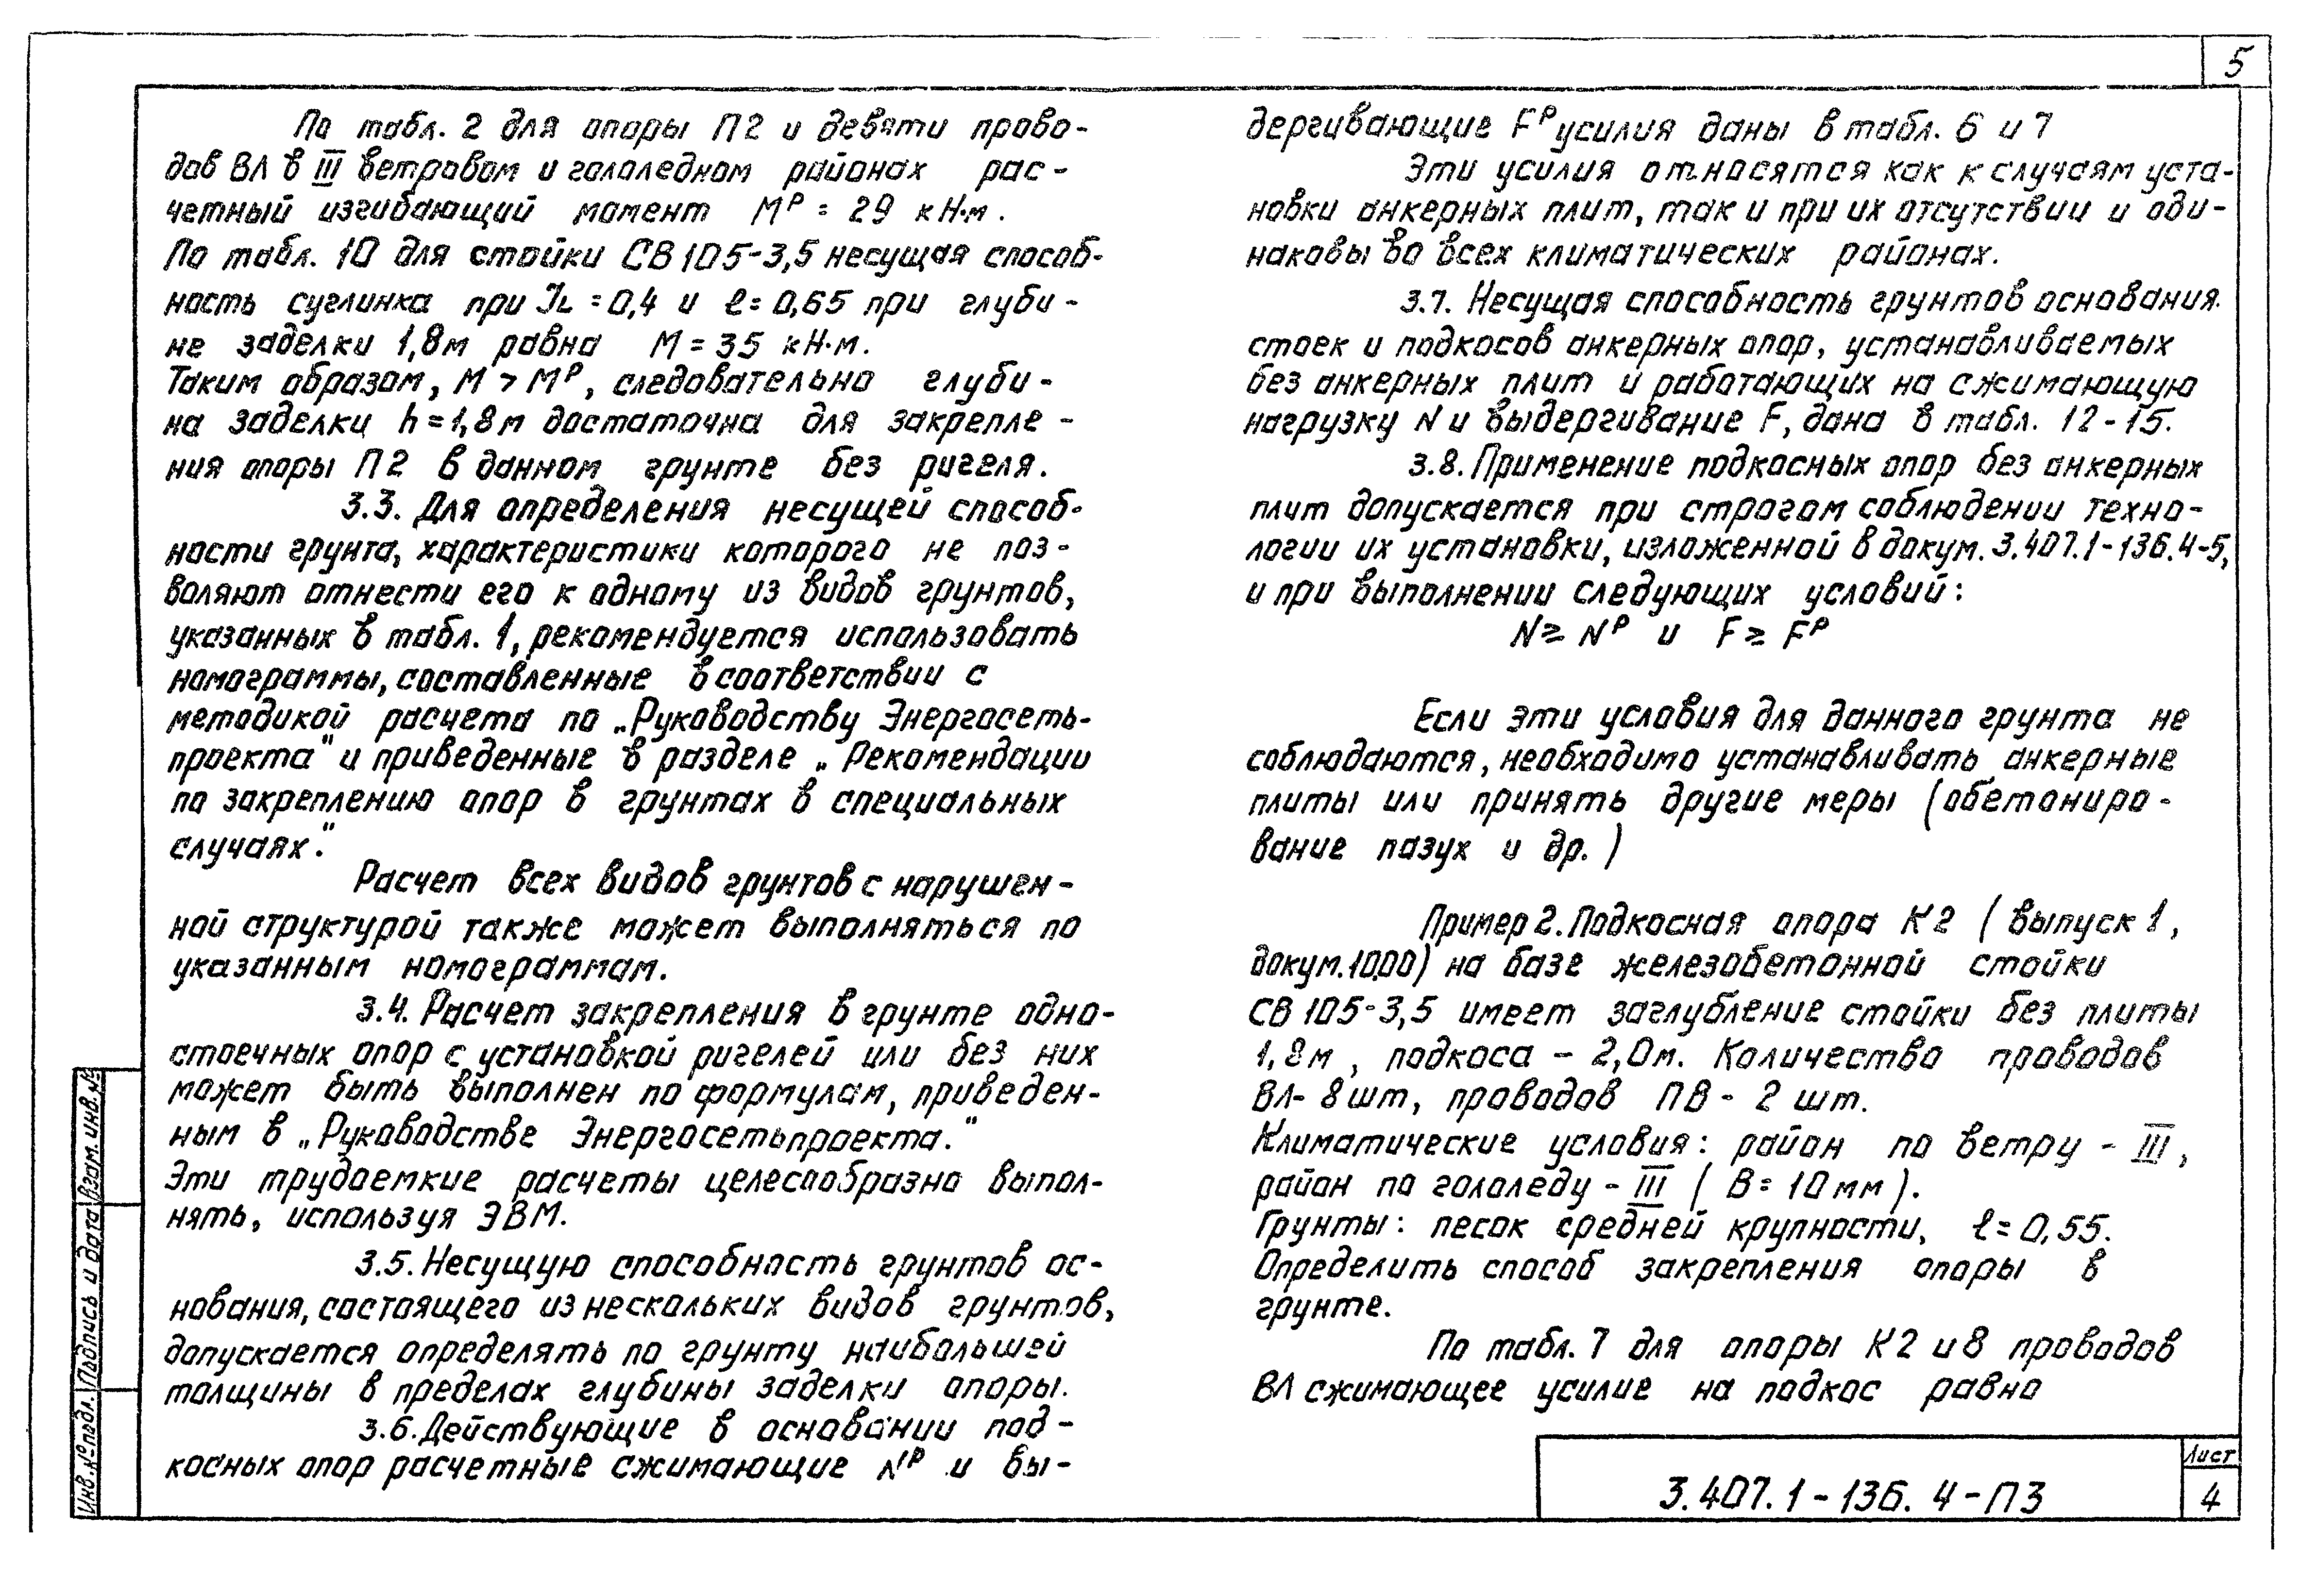 5
По табл. 2 для опоры П2 и девяти прово-
дов ВЛ в III ветровом и гололедном районах рас-
четный изгибающий момент Mᵖ = 29 кН·м.
По табл. 10 для стойки СВ 105-3,5 несущая способ-
ность суглинка при JL = 0,4 и ℓ = 0,65 при глуби-
не заделки 1,8м равна М = 35 кН·м.
Таким образом, M > Mᵖ, следовательно глуби-
на заделки h = 1,8м достаточна для закрепле-
ния опоры П2 в данном грунте без ригеля.
3.3. Для определения несущей способ-
ности грунта, характеристики которого не поз-
воляют отнести его к одному из видов грунтов,
указанных в табл. 1, рекомендуется использовать
номограммы, составленные в соответствии с
методикой расчета по „Руководству Энергосеть-
проекта" и приведенные в разделе „Рекомендации
по закреплению опор в грунтах в специальных
случаях."
Расчет всех видов грунтов с нарушен-
ной структурой также может выполняться по
указанным номограммам.
3.4. Расчет закрепления в грунте одно-
стоечных опор с установкой ригелей или без них
может быть выполнен по формулам, приведен-
ным в „Руководстве Энергосетьпроекта."
Эти трудоемкие расчеты целесообразно выпол-
нять, используя ЭВМ.
3.5. Несущую способность грунтов ос-
нования, состоящего из нескольких видов грунтов,
допускается определять по грунту наибольшей
толщины в пределах глубины заделки опоры.
3.6. Действующие в основании под-
косных опор расчетные сжимающие Nᵖ и вы-
дергивающие Fᵖ усилия даны в табл. 6 и 7
Эти усилия относятся как к случаям уста-
новки анкерных плит, так и при их отсутствии и оди-
наковы во всех климатических районах.
3.7. Несущая способность грунтов основания
стоек и подкосов анкерных опор, устанавливаемых
без анкерных плит и работающих на сжимающую
нагрузку N и выдергивание F, дана в табл. 12-15.
3.8. Применение подкосных опор без анкерных
плит допускается при строгом соблюдении техно-
логии их установки, изложенной в докум. 3.407.1-136.4-5,
и при выполнении следующих условий:
N ≥ Nᵖ и F ≥ Fᵖ
Если эти условия для данного грунта не
соблюдаются, необходимо устанавливать анкерные
плиты или принять другие меры (обетониро-
вание пазух и др.)
Пример 2. Подкосная опора К2 (выпуск 1,
докум. 10.00) на базе железобетонной стойки
СВ 105-3,5 имеет заглубление стойки без плиты
1,8м, подкоса - 2,0м. Количество проводов
ВЛ- 8 шт, проводов ПВ - 2 шт.
Климатические условия: район по ветру - III,
район по гололеду - III (В = 10 мм).
Грунты: песок средней крупности, ℓ = 0,55.
Определить способ закрепления опоры в
грунте.
По табл. 7 для опоры К2 и 8 проводов
ВЛ сжимающее усилие на подкос равно
Инв. № подл.
Подпись и дата
Взам. инв. №
3.407.1-136.4-ПЗ
Лист
4